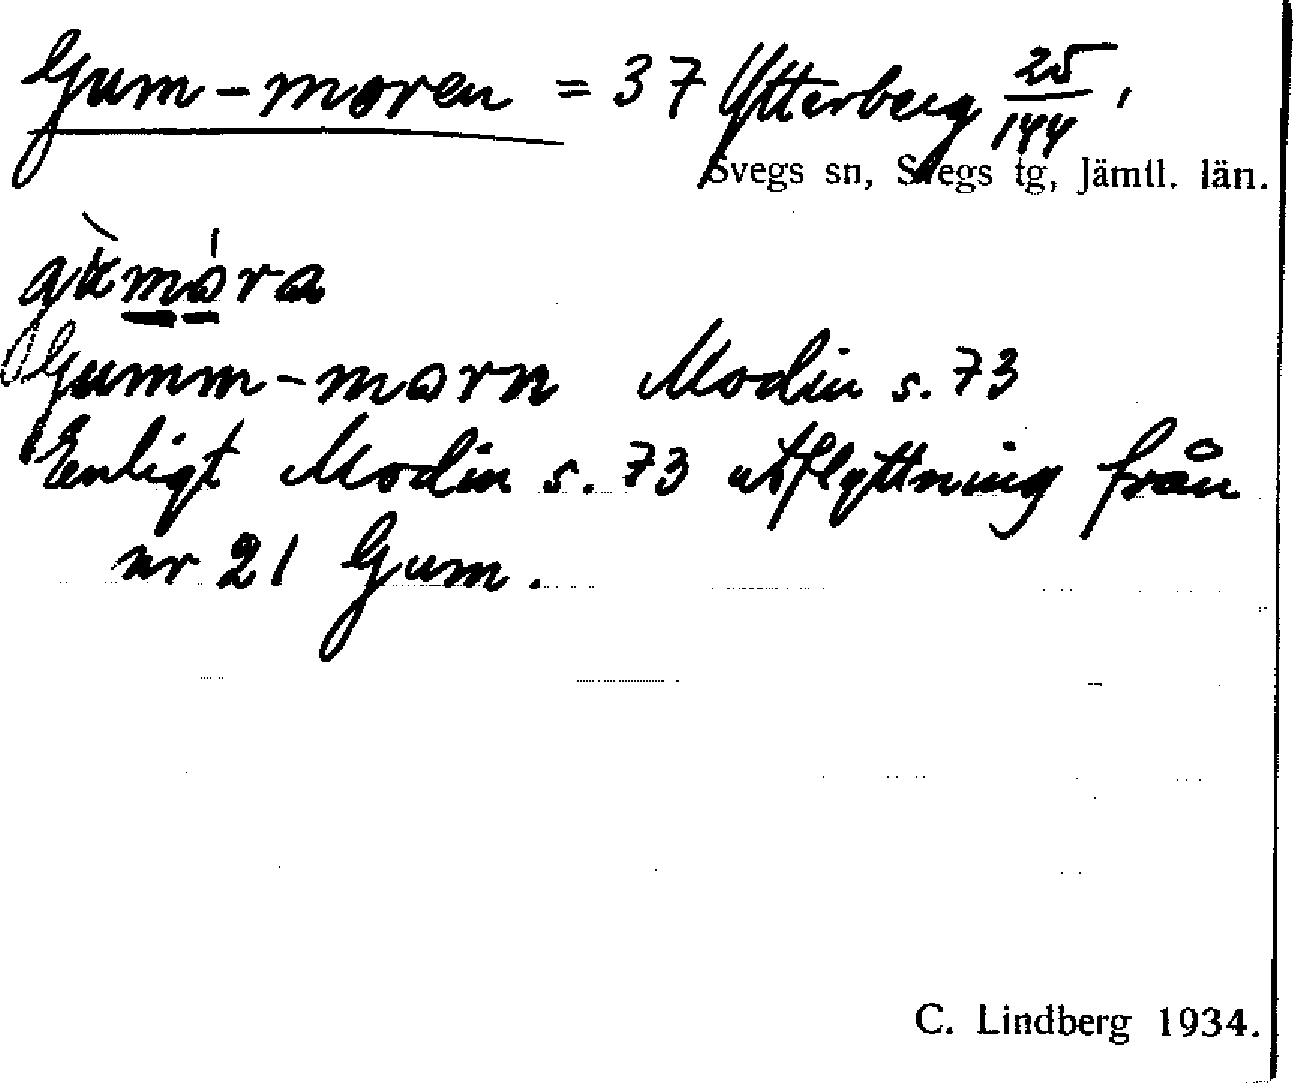 Gum-moren = 37 Ytterberg 25/144,
Svegs sn, Svegs tg, Jämtl. län.
gùmóra
Gumm-morn Modin s. 73
Enligt Modin s. 73 utflyttning från
nr 21 Gum.
C. Lindberg 1934.